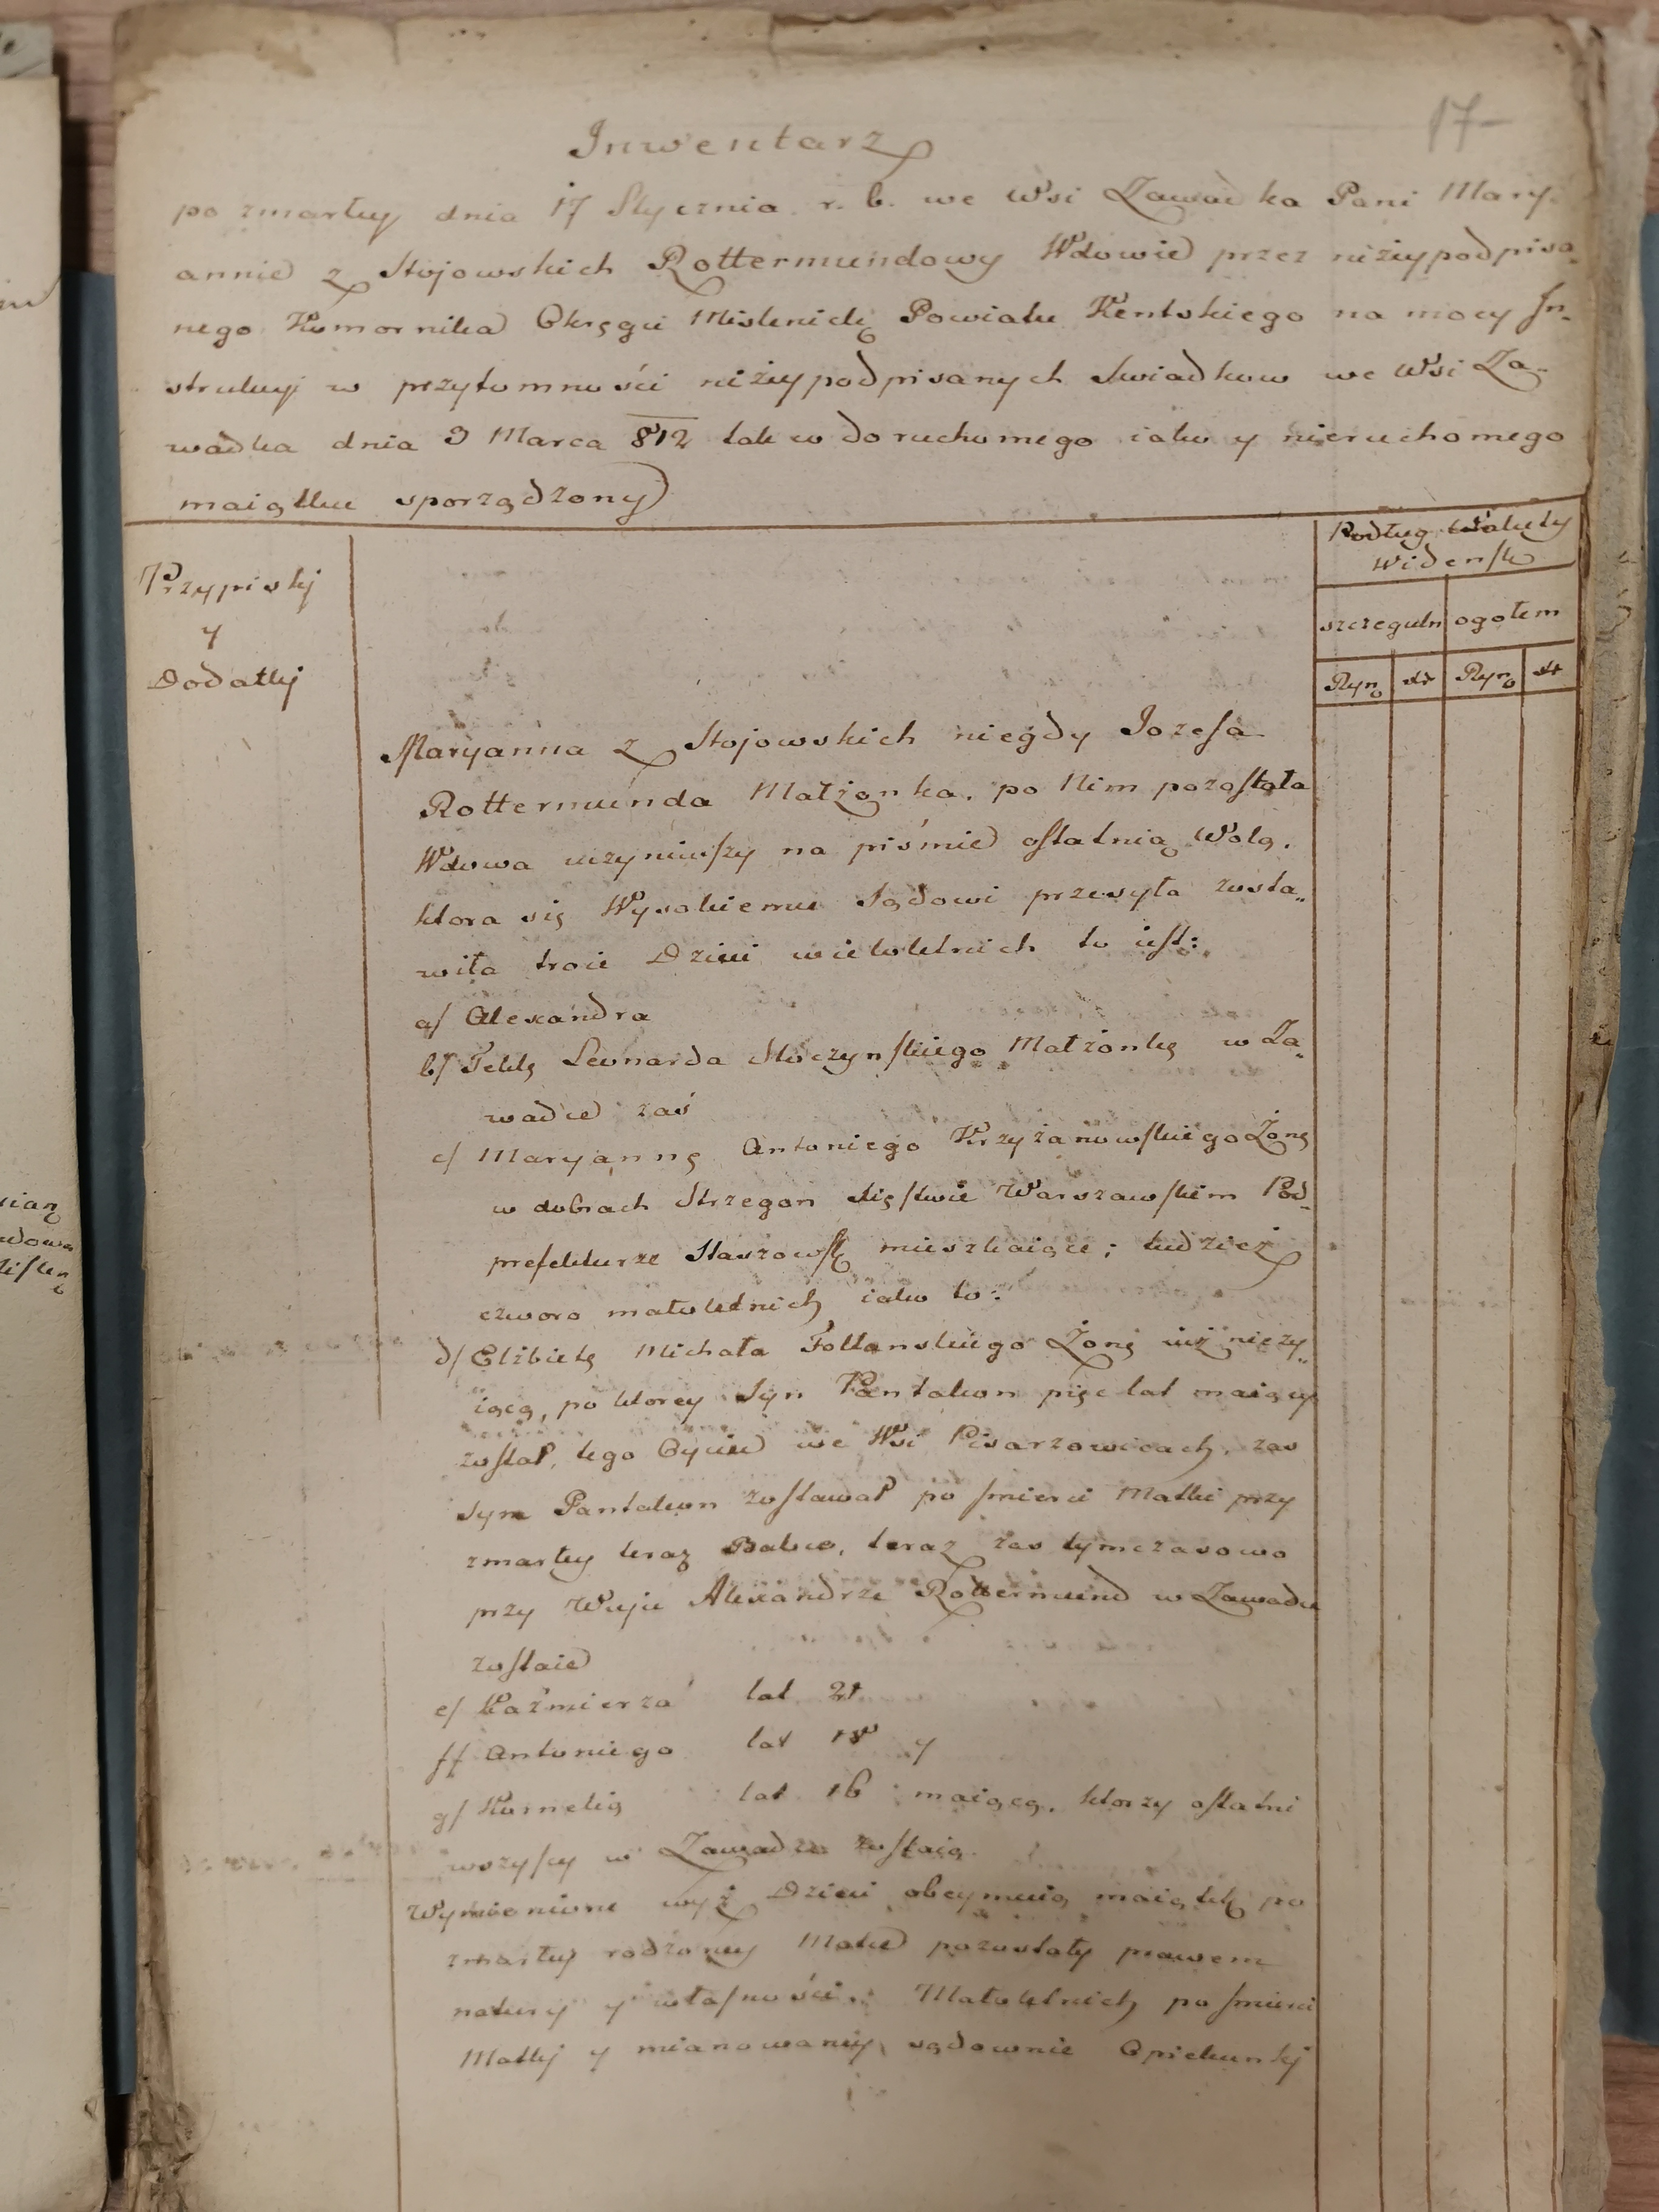 17
Inwentarz
po zmarłey dnia 17 Stycznia r. b. we Wsi Zawadka Pani Mary-
annie z Stojowskich Rottermundowy Wdowie przez niżeypodpisa-
nego Komornika Okręgu Mislenick Powiatu Kentskiego na mocy In-
strukcyi w przytomności niżeypodpisanych Swiadkow we Wsi Za-
wadka dnia 9 Marca 812 tak co do ruchomego iako y nieruchomego
maiątku sporządzony
Przypiski
y
Dodatki
Podług Waluty
Widensk
szczeguln ogołem
Ryn xr Ryn xr
Maryanna z Stojowskich niegdy Jozefa
Rottermunda Małżonka, po Nim pozostała
Wdowa uczyniwszy na piśmie ostatnią Wolą,
ktora się Wysokiemu Sądowi przesyła zosta„
wiła troie Dzieci wieloletnich to iest:
a/ Alexandra
b/ Teklę Leonarda Stoczynskiego Małżonkę w Za„
wadce zaś
c/ Maryannę Antoniego Krzyżanowskiego Żonę
w dobrach Strzegon Xięstwie Warszawskim Pod-
prefekturze Staszowsk mieszkaiące; tudzież
czworo małoletnich iako to:
d/ Elżbietę Michała Foltanskiego Żonę iuż nieży„
iącą, po ktorey Syn Pantaleon pięc lat maiący
został, tego Oyciec we Wsi Pisarzowicach, zas
Syn Pantaleon zostawał po smierci Matki przy
zmarłey teraz Babce, teraz zas tymczasowo
przy Wuju Alexandrze Rottermund w Zawadce
zostaie
e/ Kaźmierza lat 21
f/ Antoniego lat 18 y
g/ Kornelią lat 16 maiącą, ktorzy ostatni
wszyscy w Zawadce zostaią.
Wymienione wyż Dzieci obeymuią maiątek po
zmarłey rodzoney Matce pozostały prawem
natury y własności. Małoletnich po smierci
Matki y mianowaney sądownie Opiekunki